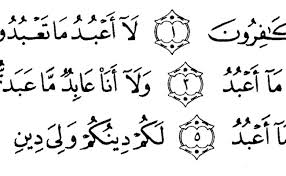 كَٰفِرُونَ ١ لَآ أَعْبُدُ مَا تَعْبُدُو
مَآ أَعْبُدُ ٣ وَلَآ أَنَا۠ عَابِدٌ مَّا عَبَد
مَآ أَعْبُدُ ٥ لَكُمْ دِينُكُمْ وَلِىَ دِينِ